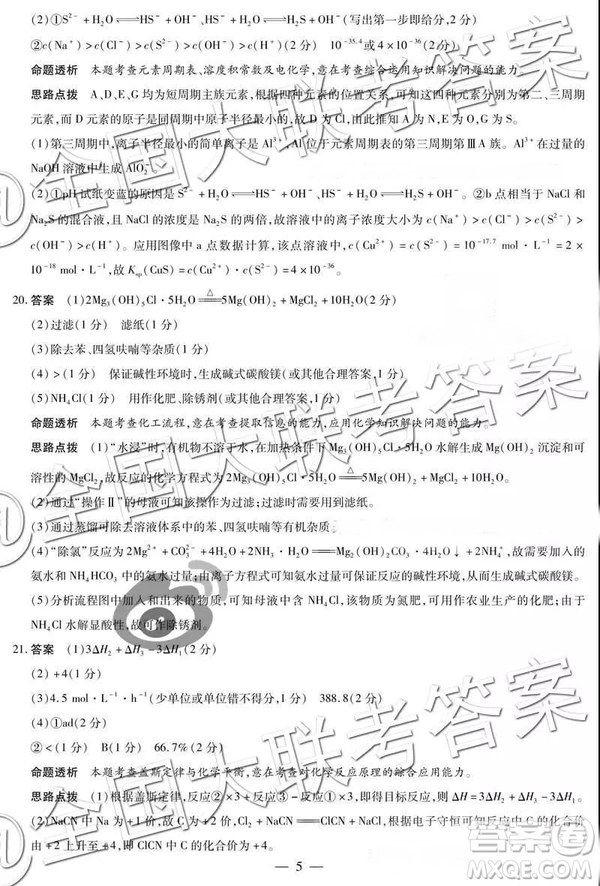 (2)①S²⁻+H₂O⇌HS⁻+OH⁻、HS⁻+H₂O⇌H₂S+OH⁻(写出第一步即给分,2分)
②c(Na⁺)>c(Cl⁻)>c(S²⁻)>c(OH⁻)(2分) 10⁻³⁵·⁴或4×10⁻³⁶(2分)
命题透析 本题考查元素周期表、溶度积常数及电化学,意在考查综合运用知识解决问题的能力。
思路点拨 A、D、E、G均为短周期主族元素,根据四种元素的位置关系,可知这四种元素分别为第二、三周期
元素,而D元素的原子是同周期中原子半径最小的,故D为Cl,由此推出A为N,E为Al,G为S。
(1)第三周期中,离子半径最小的简单离子是Al³⁺,Al位于元素周期表的第三周期第ⅢA族。Al³⁺在过量的
NaOH溶液中生成AlO₂⁻。
(2)①pH试纸变蓝的原因是S²⁻+H₂O⇌HS⁻+OH⁻、HS⁻+H₂O⇌H₂S+OH⁻。②b点相当于NaCl和
Na₂S的混合液,且NaCl的浓度是Na₂S的两倍,故溶液中的离子浓度大小关系为c(Na⁺)>c(Cl⁻)>c(S²⁻)
>c(OH⁻)。应用图像中a点数据计算,该点溶液中,c(Cu²⁺)=c(S²⁻)=10⁻¹⁷·⁷mol·L⁻¹=2×
10⁻¹⁸mol·L⁻¹,故Ksp(CuS)=c(Cu²⁺)·c(S²⁻)=4×10⁻³⁶。
20.答案 (1)2Mg₃(OH)₅Cl·5H₂O≜5Mg(OH)₂+MgCl₂+10H₂O(2分)
(2)过滤(1分) 滤纸(1分)
(3)除去苯、四氢呋喃等杂质(1分)
(4)>(1分) 保证碱性环境时,生成碱式碳酸镁(或其他合理答案,1分)
(5)NH₄Cl(1分) 用作化肥、除锈剂(或其他合理答案,1分)
命题透析 本题考查化工流程,意在考查提取信息的能力,应用化学知识解决问题的能力。
思路点拨 (1)“水浸”时,有机物不溶于水,在加热条件下Mg₃(OH)₅Cl·5H₂O水解生成Mg(OH)₂沉淀和可
溶性的MgCl₂,故反应的化学方程式为2Mg₃(OH)₅Cl·5H₂O≜5Mg(OH)₂+MgCl₂+10H₂O。
(2)通过“操作Ⅱ”的母液可知该操作为过滤;过滤时需要用到滤纸。
(3)通过蒸馏可除去溶液体系中的苯、四氢呋喃等有机杂质。
(4)“除氯”反应为2Mg²⁺+CO₃²⁻+2NH₃·H₂O+4H₂O═Mg(OH)₂CO₃·4H₂O↓+2NH₄⁺,故需要加入的
氨水和NH₄HCO₃中的氨水过量;由离子方程式可知氨水过量可保证反应的碱性环境,生成碱式碳酸镁。
(5)分析流程图中加入和出来的物质,可知母液中含有NH₄Cl,该物质为氮肥,可用作农业生产的化肥;由于
NH₄Cl水解显酸性,故可作除锈剂。
21.答案 (1)3ΔH₂+ΔH₃-3ΔH₁(1分)
(2)+4(1分)
(3)4.5 mol·L⁻¹·h⁻¹(少单位或单位错不得分,1分) 388.8(2分)
(4)①ad(2分)
②<(1分) B(1分) 66.7%(2分)
命题透析 本题考查盖斯定律与化学平衡,意在考查对化学反应原理的综合应用能力。
思路点拨 (1)根据盖斯定律,反应②×3+反应③-反应①×3,即得目标反应,则ΔH=3ΔH₂+ΔH₃-3ΔH₁。
(2)NaCN中Na为+1价,N为-3价,故C的化合价为+2价,NaCN转化为ClCN,根据电子守恒可知C的化合价
由+2上升至+4,即ClCN中C的化合价为+4。
— 5 —
@全国大联考答案
答案圈